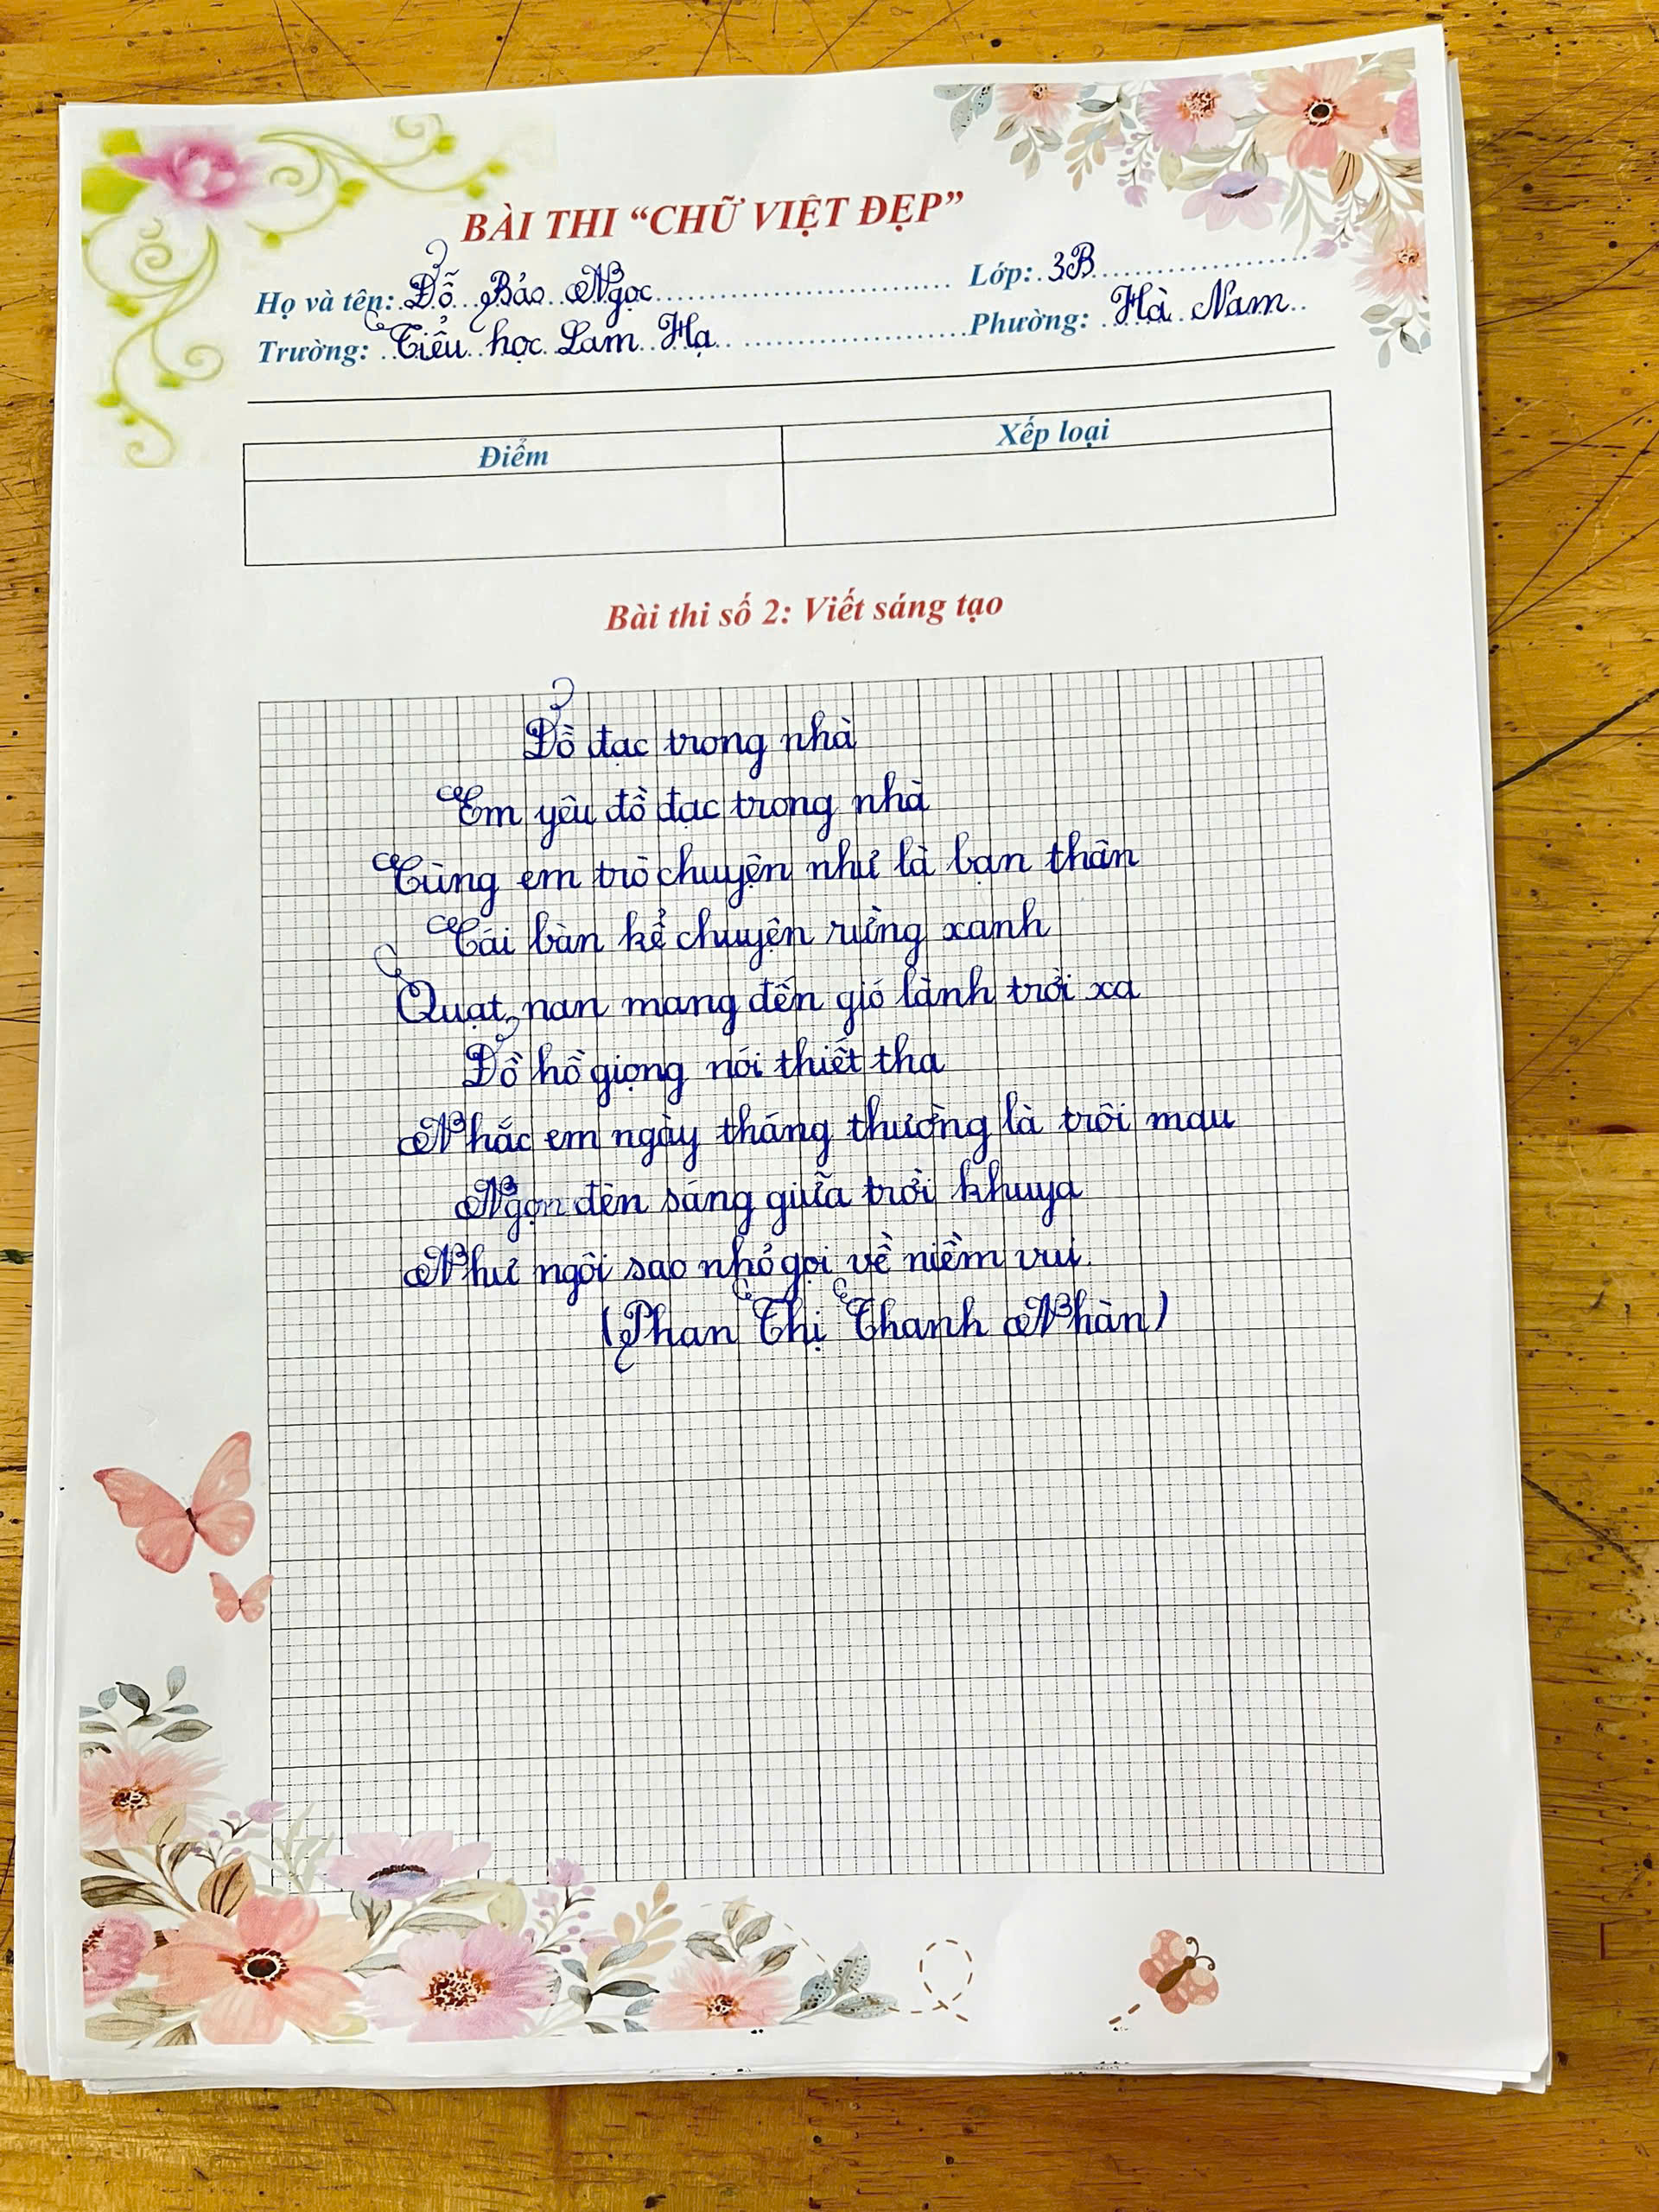 BÀI THI “CHỮ VIỆT ĐẸP”
Họ và tên: Đỗ Bảo Ngọc Lớp: 3B
Trường: Tiểu học Lam Hạ Phường: Hà Nam
Điểm Xếp loại
Bài thi số 2: Viết sáng tạo
Đồ đạc trong nhà
Em yêu đồ đạc trong nhà
Cùng em trò chuyện như là bạn thân
Cái bàn kể chuyện rừng xanh
Quạt nan mang đến gió lành trời xa
Đồ hồ giọng nói thiết tha
Nhắc em ngày tháng thường là trôi mau
Ngọn đèn sáng giữa trời khuya
Như ngôi sao nhỏ gọi về niềm vui.
(Phan Thị Thanh Nhàn)